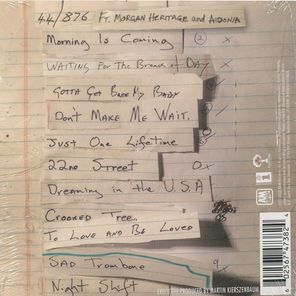 44/876 FT. MORGAN HERITAGE AND AIDONIA
MORNING IS COMING
WAITING FOR THE BREAK OF DAY
GOTTA GET BACK MY BABY
DON'T MAKE ME WAIT.
JUST ONE LIFETIME
22ND STREET
DREAMING IN THE U.S.A
CROOKED TREE,
TO LOVE AND BE LOVED
SAD TROMBONE
NIGHT SHIFT
PRODUCED BY MARTIN KIERSZENBAUM
6 02567 47382 4